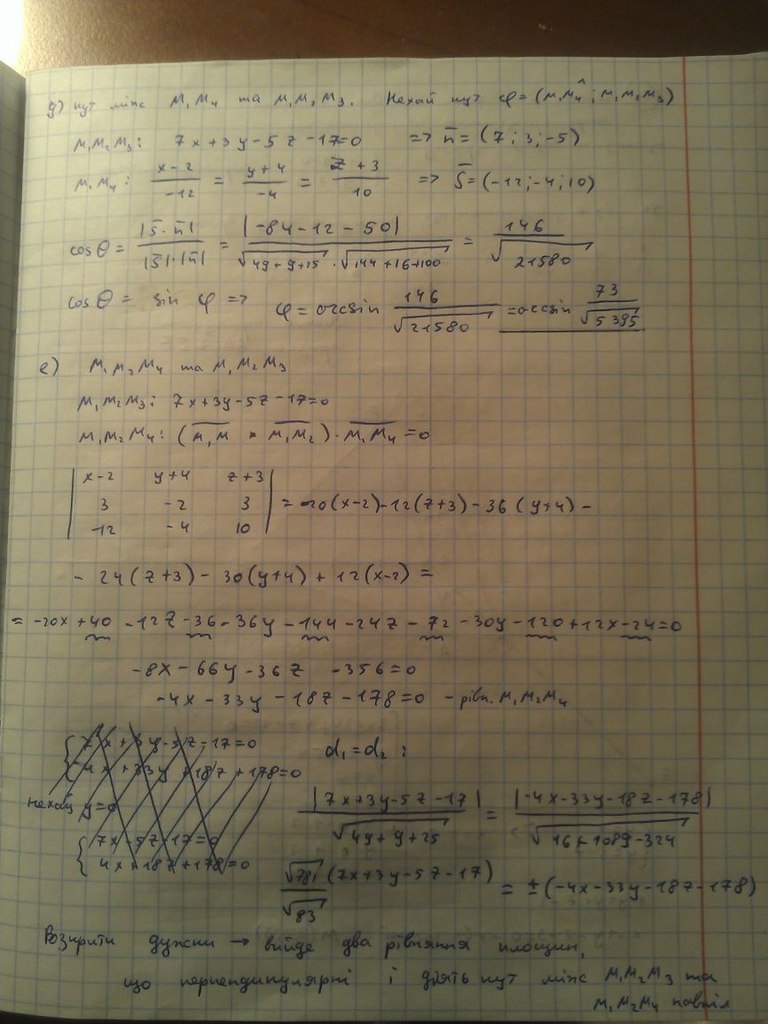 д) кут між M₁M₄ та M₁M₂M₃. Нехай кут φ = (M₁M₄ ^; M₁M₂M₃)
M₁M₂M₃: 7x+3y-5z-17=0 => n̅ = (7; 3; -5)
M₁M₄: (x-2)/(-12) = (y+4)/(-4) = (z+3)/10 => s̅ = (-12; -4; 10)
cos θ = |s̅·n̅| / (|s̅|·|n̅|) = |-84-12-50| / (√(49+9+25)·√(144+16+100)) = 146/√21580
cos θ = sin φ => φ = arcsin 146/√21580 = arcsin 73/√5395
е) M₁M₂M₄ та M₁M₂M₃
M₁M₂M₃: 7x+3y-5z-17=0
M₁M₂M₄: (M₁M × M₁M₂)·M₁M₄ = 0
| x-2 y+4 z+3 |
| 3 -2 3 | = -20(x-2)-12(z+3)-36(y+4)-
| -12 -4 10 |
- 24(z+3) - 30(y+4) + 12(x-2) =
= -20x+40-12z-36-36y-144-24z-72-30y-120+12x-24=0
-8x-66y-36z -356=0
-4x-33y-18z-178=0 - рівн. M₁M₂M₄
{ 7x+3y-5z-17=0 d₁=d₂:
4x+33y+18z+178=0
нехай y=0 |7x+3y-5z-17| / √(49+9+25) = |-4x-33y-18z-178| / √(16+1089-324)
{ 7x-5z-17=0
4x+18z+178=0
√781/√83 (7x+3y-5z-17) = ±(-4x-33y-18z-178)
Возкрити дужки → вийде два рівняння площин,
що перпендикулярні і ділять кут між M₁M₂M₃ та
M₁M₂M₄ навпіл